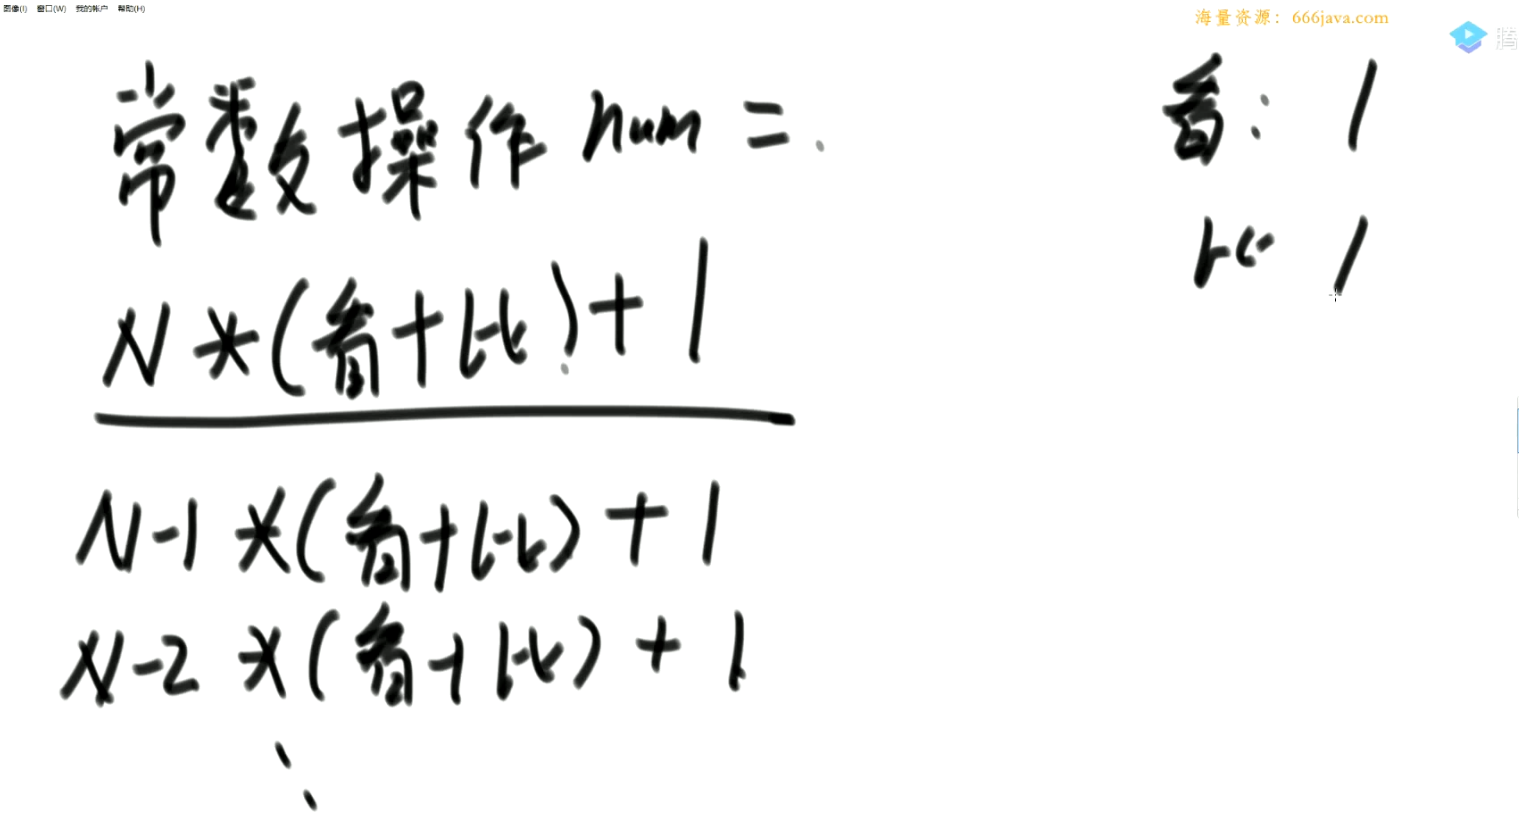 图像(I) 窗口(W) 我的帐户 帮助(H)
海量资源：666java.com
腾
常数操作 num =
看: 1
比 1
N * (看+比) + 1
N-1 * (看+比) + 1
N-2 * (看+比) + 1